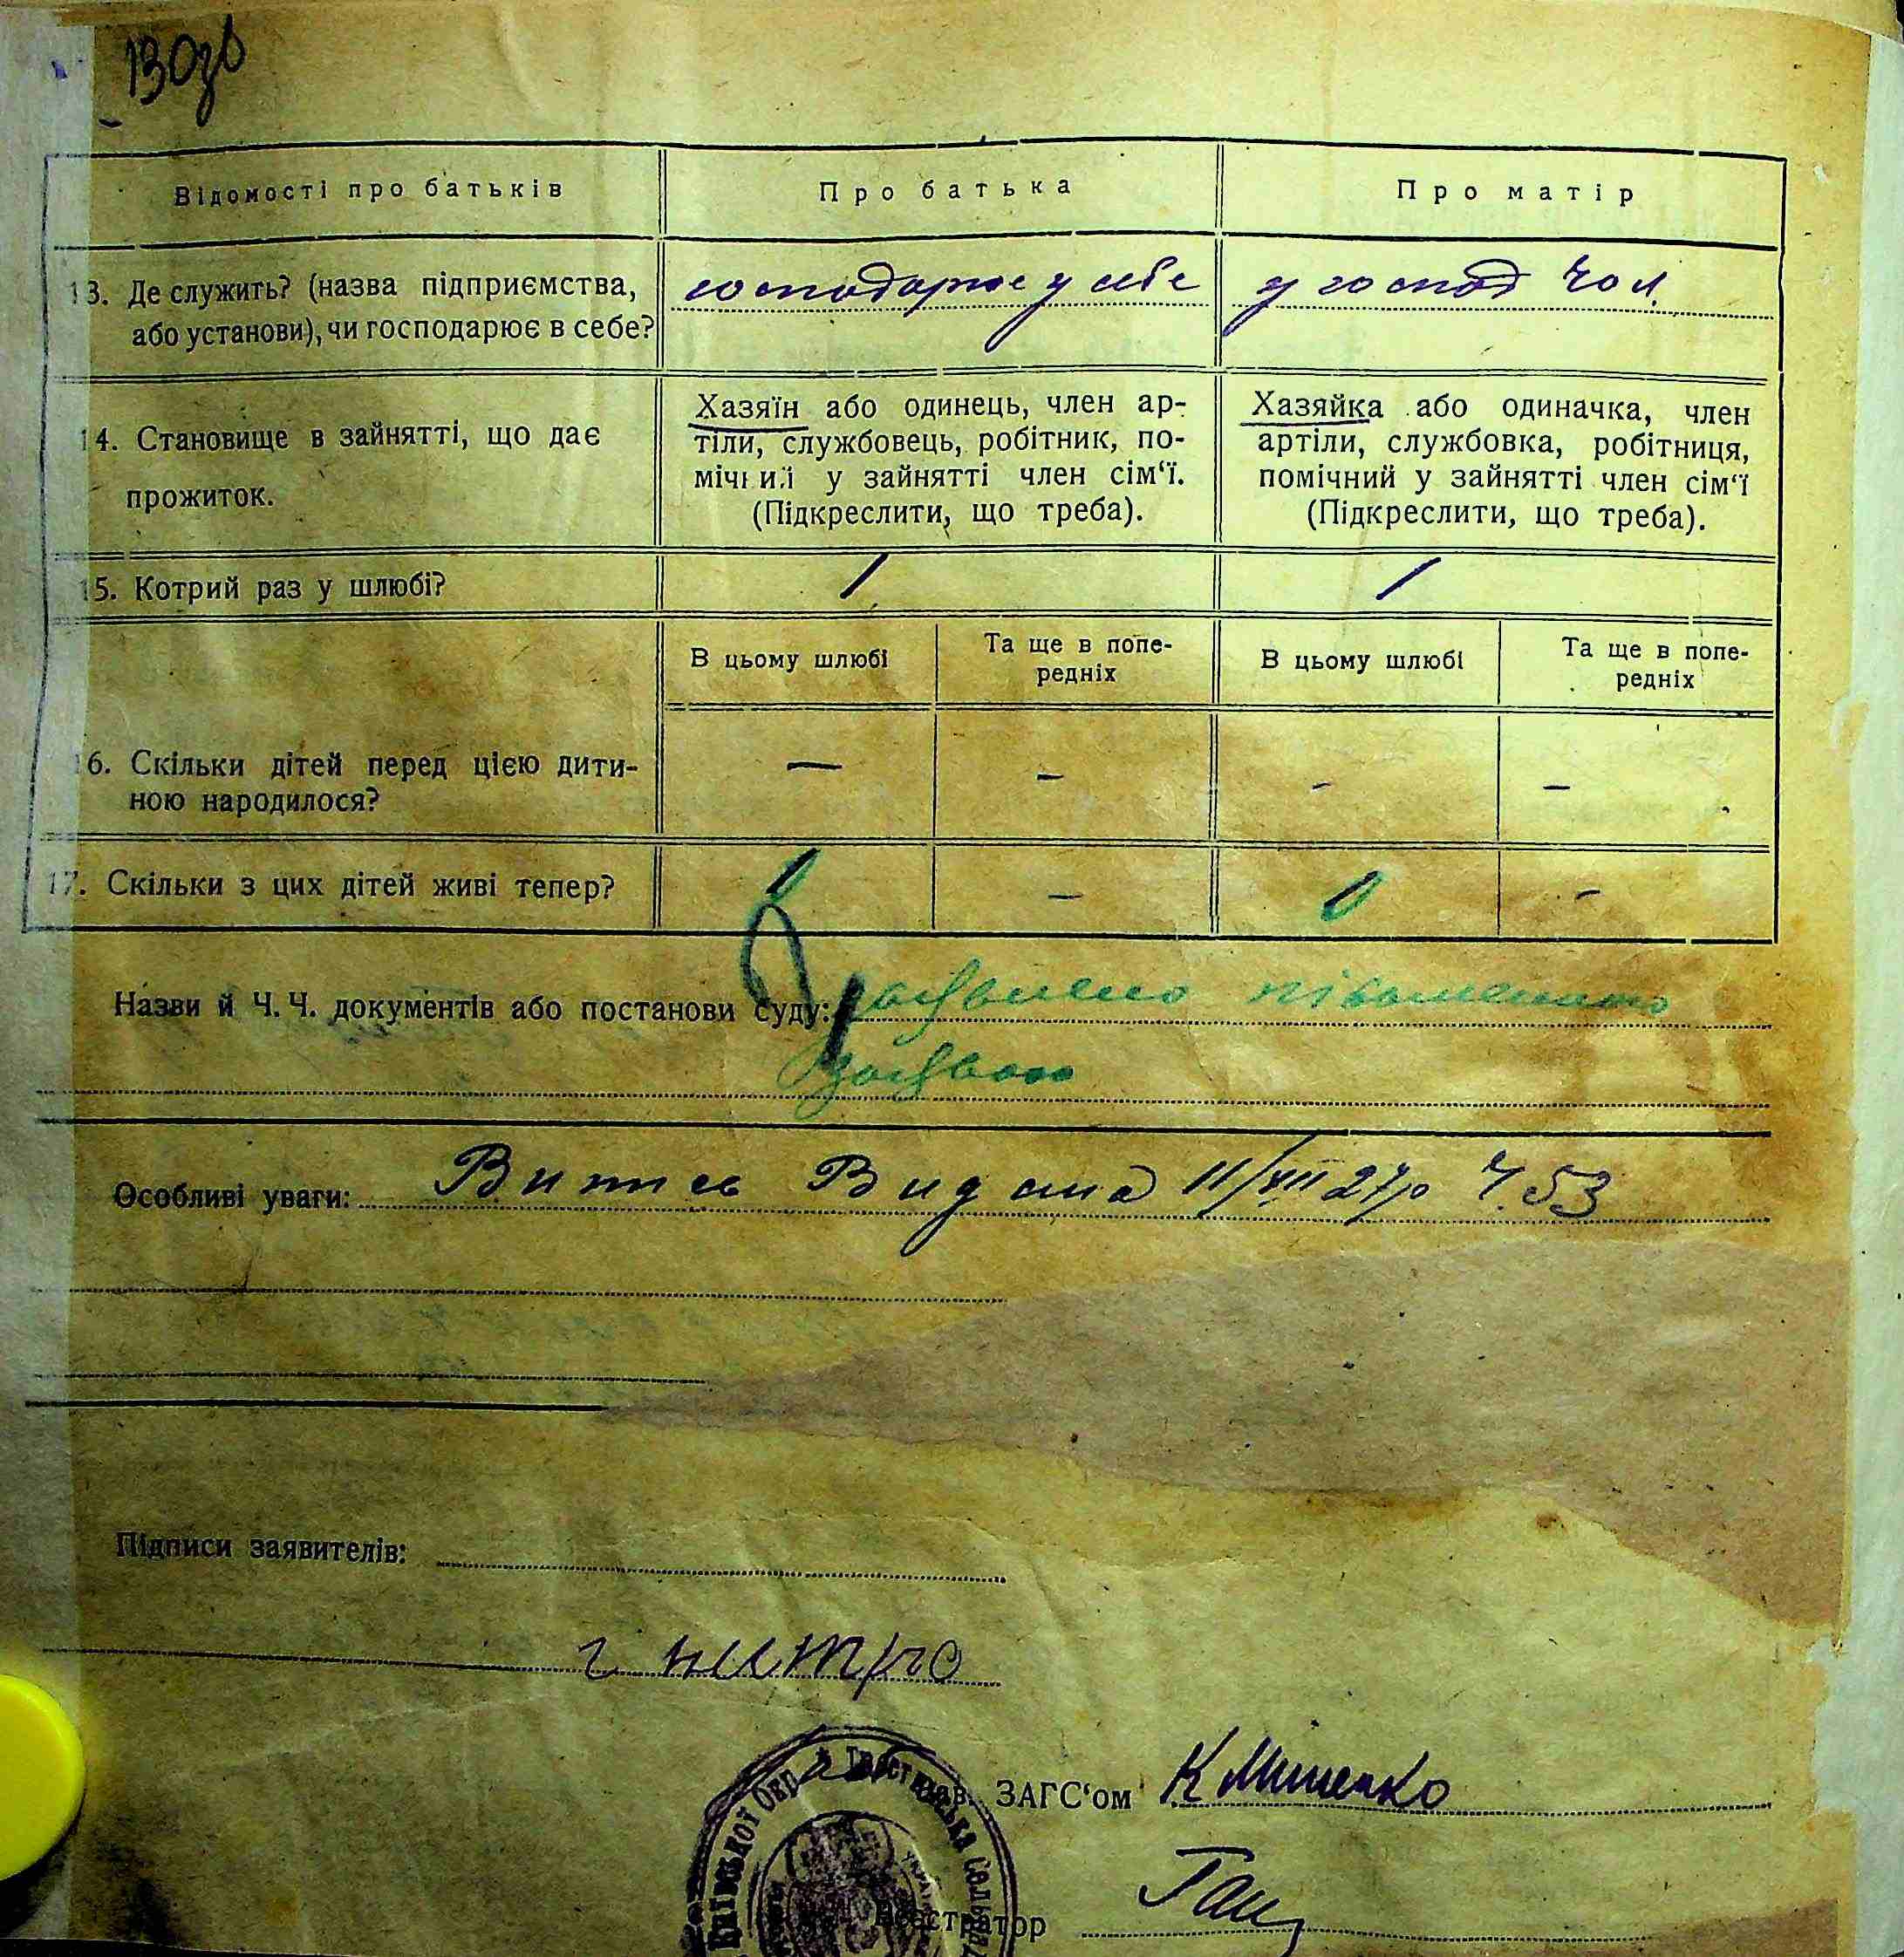 130зв
Відомості про батьків
Про батька
Про матір
13. Де служить? (назва підприємства,
або установи), чи господарює в себе?
господарює у себе
у господ чол.
14. Становище в зайнятті, що дає
прожиток.
Хазяїн або одинець, член ар-
тіли, службовець, робітник, по-
мічний у зайнятті член сім‘ї.
(Підкреслити, що треба).
Хазяйка або одиначка, член
артіли, службовка, робітниця,
помічний у зайнятті член сім‘ї
(Підкреслити, що треба).
15. Котрий раз у шлюбі?
1
1
В цьому шлюбі
Та ще в попе-
редніх
В цьому шлюбі
Та ще в попе-
редніх
16. Скільки дітей перед цією дити-
ною народилося?
— — - —
17. Скільки з цих дітей живі тепер?
— -
Назви й Ч. Ч. документів або постанови суду: заявлено
заявою
Особливі уваги: Випись Видана 11/XII 27р Ч. 53
Підписи заявителів:
Зав. ЗАГС‘ом К Мищенко
Київської Окр
Реєстратор